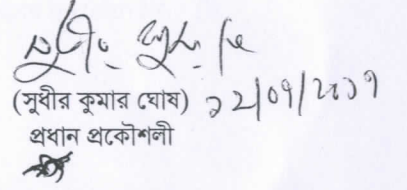 (সুধীর কুমার ঘোষ) ১২/০৭/২০১৭
প্রধান প্রকৌশলী